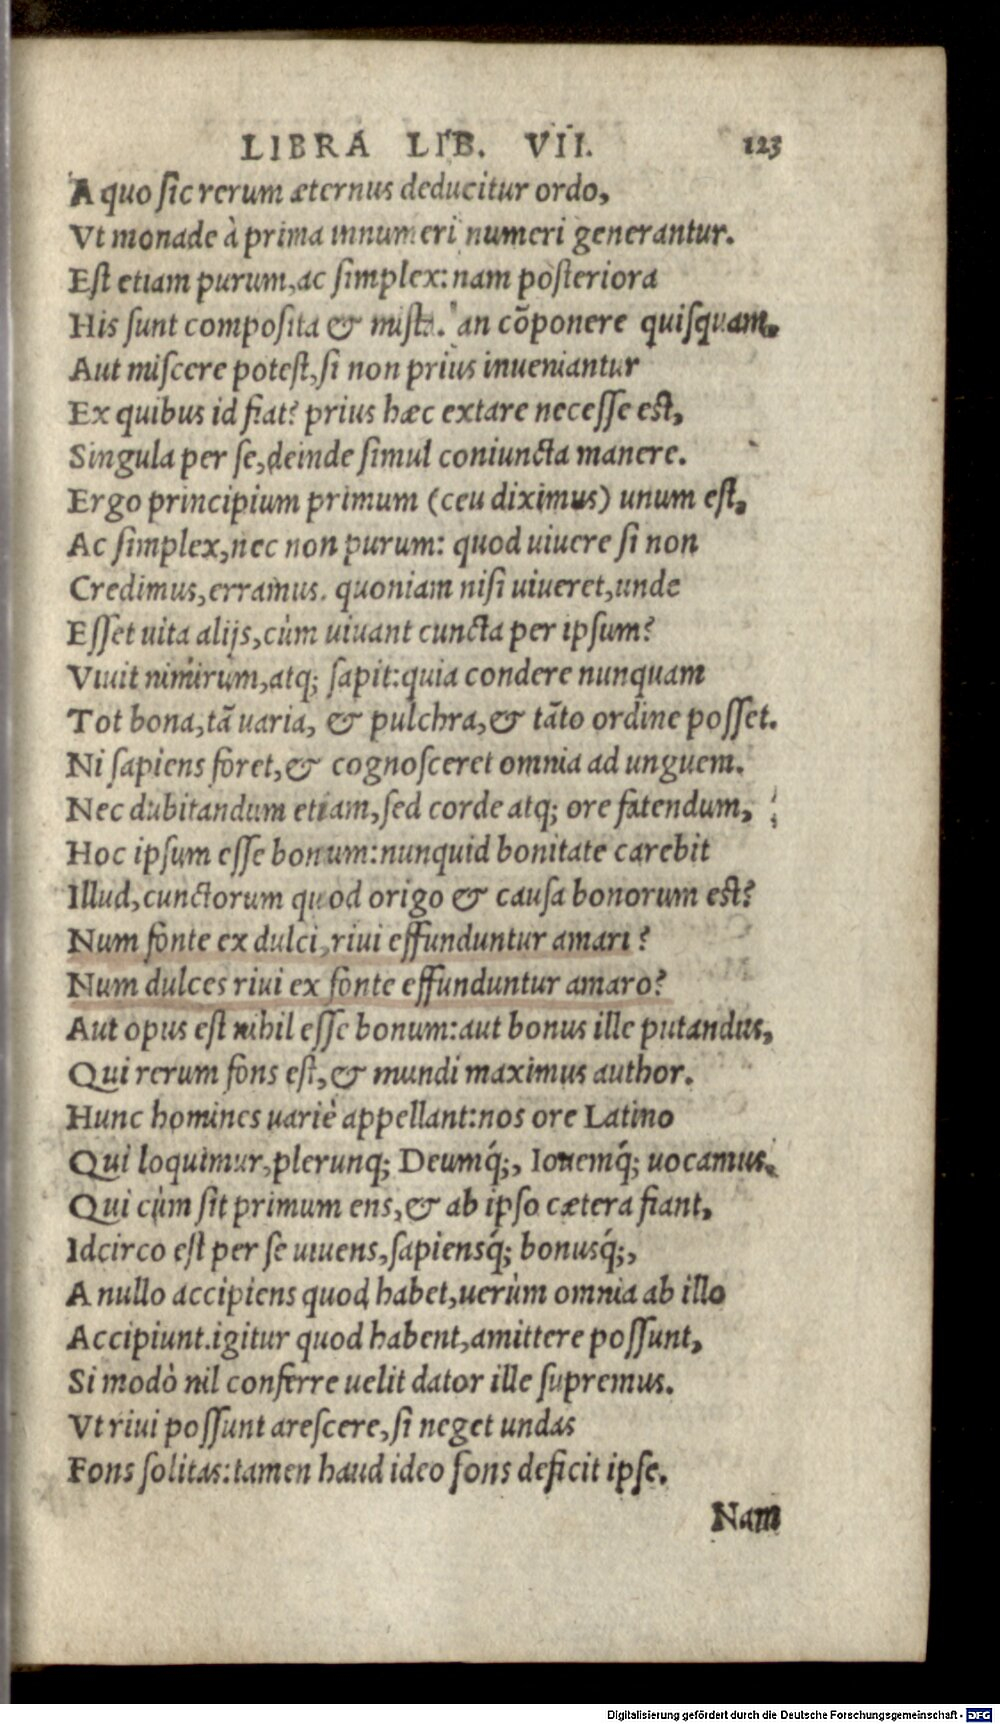 LIBRA LIB. VII. 123
A quo sic rerum æternus deducitur ordo,
Vt monade à prima innumeri numeri generantur.
Est etiam purum, ac simplex: nam posteriora
His sunt composita & mista. an cõponere quisquam,
Aut miscere potest, si non prius inueniantur
Ex quibus id fiat? prius hæc extare necesse est,
Singula per se, deinde simul coniuncta manere.
Ergo principium primum (ceu diximus) unum est,
Ac simplex, nec non purum: quod uiuere si non
Credimus, erramus. quoniam nisi uiueret, unde
Esset uita alijs, cùm uiuant cuncta per ipsum?
Viuit nimirum, atq; sapit: quia condere nunquam
Tot bona, tã uaria, & pulchra, & tãto ordine posset.
Ni sapiens foret, & cognosceret omnia ad unguem.
Nec dubitandum etiam, sed corde atq; ore fatendum,
Hoc ipsum esse bonum: nunquid bonitate carebit
Illud, cunctorum quod origo & causa bonorum est?
Num fonte ex dulci, riui effunduntur amari?
Num dulces riui ex fonte effunduntur amaro?
Aut opus est nihil esse bonum: aut bonus ille putandus,
Qui rerum fons est, & mundi maximus author.
Hunc homines uariè appellant: nos ore Latino
Qui loquimur, plerunq; Deumq́;, Iouemq́; uocamus.
Qui cùm sit primum ens, & ab ipso cætera fiant,
Idcirco est per se uiuens, sapiensq́; bonusq́;,
A nullo accipiens quod habet, uerùm omnia ab illo
Accipiunt. igitur quod habent, amittere possunt,
Si modò nil conferre uelit dator ille supremus.
Vt riui possunt arescere, si neget undas
Fons solitas: tamen haud ideo fons deficit ipse.
Nam
Digitalisierung gefördert durch die Deutsche Forschungsgemeinschaft - DFG